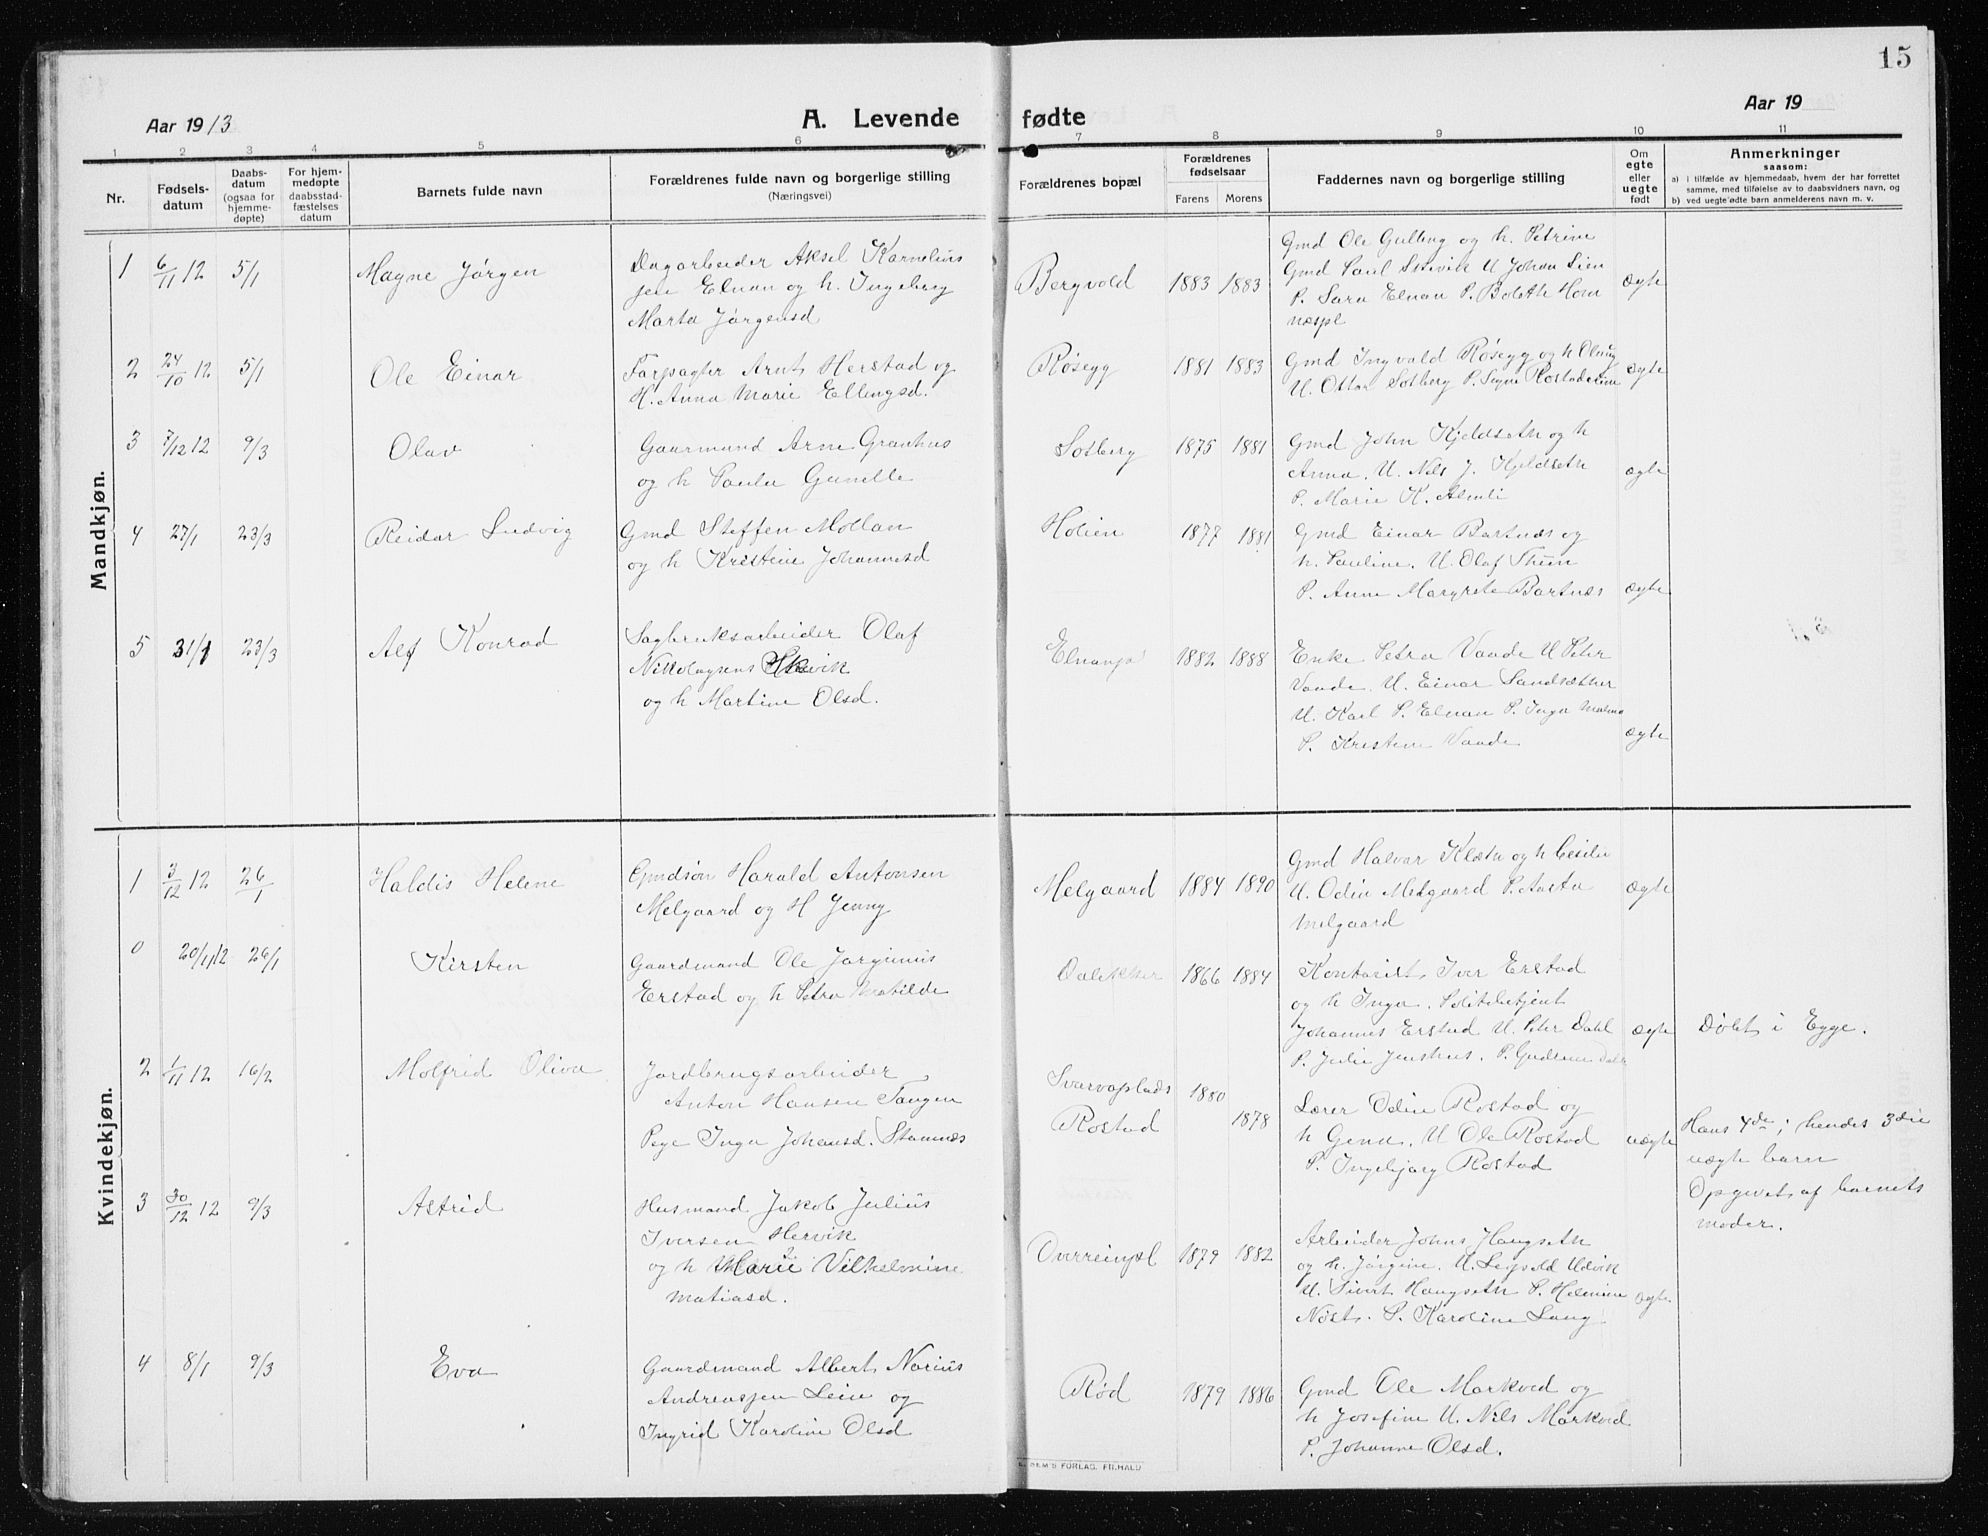 15
Aar 1913
A. Levende fødte
Aar 19
1 2 3 4 5 6 7 8 9 10 11
Nr.
Fødsels-
datum
Daabs-
datum
(ogsaa for
hjemme-
døpte)
For hjem-
medøpte
daabsstad-
fæstelses
datum
Barnets fulde navn
Forældrenes fulde navn og borgerlige stilling
(Næringsvei)
Forældrenes bopæl
Forældrenes
fødselsaar
Farens Morens
Faddernes navn og borgerlige stilling
Om
egte
eller
uegte
født
Anmerkninger
saasom:
a) i tilfælde av hjemmedaab, hvem der har forrettet
samme, med tilføielse av to daabsvidners navn, og
b) ved uegte fødte barn anmelderens navn m. v.
Mandkjøn.
1 6/11 12 5/1 Magne Jørgen
Dagarbeider Aksel Kornelius
sen Elnan og h. Ingeborg
Marta Jørgensd
Bergvold 1883 1883
Gmd Ole Gulling og h. Petrine
Gmd Paul U Johan Lien
P. Sara Elnan P. Boleth Hom
næspl
ægte
2 24/10 12 5/1 Ole Einar
Forpagter Arnt Herstad og
H. Anna Marie Ellingsd.
Røsegg 1881 1883
Gmd Ingvald Røsegg og h
U. Ottar Solberg P. Signe
ægte
3 7/12 12 9/3 Olav
Gaarmand Arne Granhus
og h Paula Gunelle
Solberg 1875 1881
Gmd John Kjeldseth og h
Anna. U. Nels J. Kjeldseth
P. Marie K. Almli
ægte
4 27/1 23/3 Reidar Ludvig
Gmd Steffen Mollan
og h Kristine Johannesd
Holien 1877 1881
Gmd Einar Bartnæs og
h. Pauline. U. Olaf Thun
P. Anne Margrete Bartnæs
ægte
5 31/1 23/3 Alf Konrad
Sagbruksarbeider Olaf
Nikolaysens
og h Martine Olsd.
1882 1888
Enke Petra Vaade U Peter
Vaade. U. Einar Sandsether
U. Karl P. Elnan P. Inga
P. Kristine Vaade
ægte
Kvindekjøn.
1 3/12 12 26/1 Haldis Helene
Gmdsøn Harald Antonsen
Melgaard og H Jenny
Melgaard 1884 1890
Gmd Halvar og h Cesilie
U. Odin Melgaard P. Aasta
Melgaard
ægte
0 20/11 12 26/1 Kirsten
Gaardmand Ole Jørginius
Erstad og h Petra Matilde
1866 1884
Kontorist Iver Erstad
og h Inga. Politibetjent
Johannes Erstad U. Peter Dahl
P. Julie Jenshus. P. Gudrun Dahl
ægte
Døbt i Egge.
2 1/11 12 16/2 Molfrid Oliva
Jordbrugsarbeider
Anton Hansen Tangen
Pige Inga Johansd. Stamnæs
Svarvaplads
Rostad
1880
1878
Lærer Odin Rostad og
h Gena. U Ole Rostad
P. Ingebjørg Rostad
uægte
Hans 4de; hendes 3die
uægte barn
Opgivet af barnets
moder.
3 30/12 12 9/3 Astrid
Husmand Jakob Julius
Iversen Hervik
og h Marie Vilhelmine
Matiasd.
Overreinpl 1879 1882
Arbeider Johns Haugseth
og h. Jørgine. U. Leopold Udvik
U. Sivert Haugseth P. Helmine
Nøst. P. Karoline Lang
ægte
4 8/1 9/3 Eva
Gaardmand Albert Norius
Andreassen Lein og
Ingrid Karoline Olsd
Rød 1879 1886
Gmd Ole Markved og
h Josefine U. Nils Markved
P. Johanne Olsd.
SEM'S FORLAG. FR.HALD